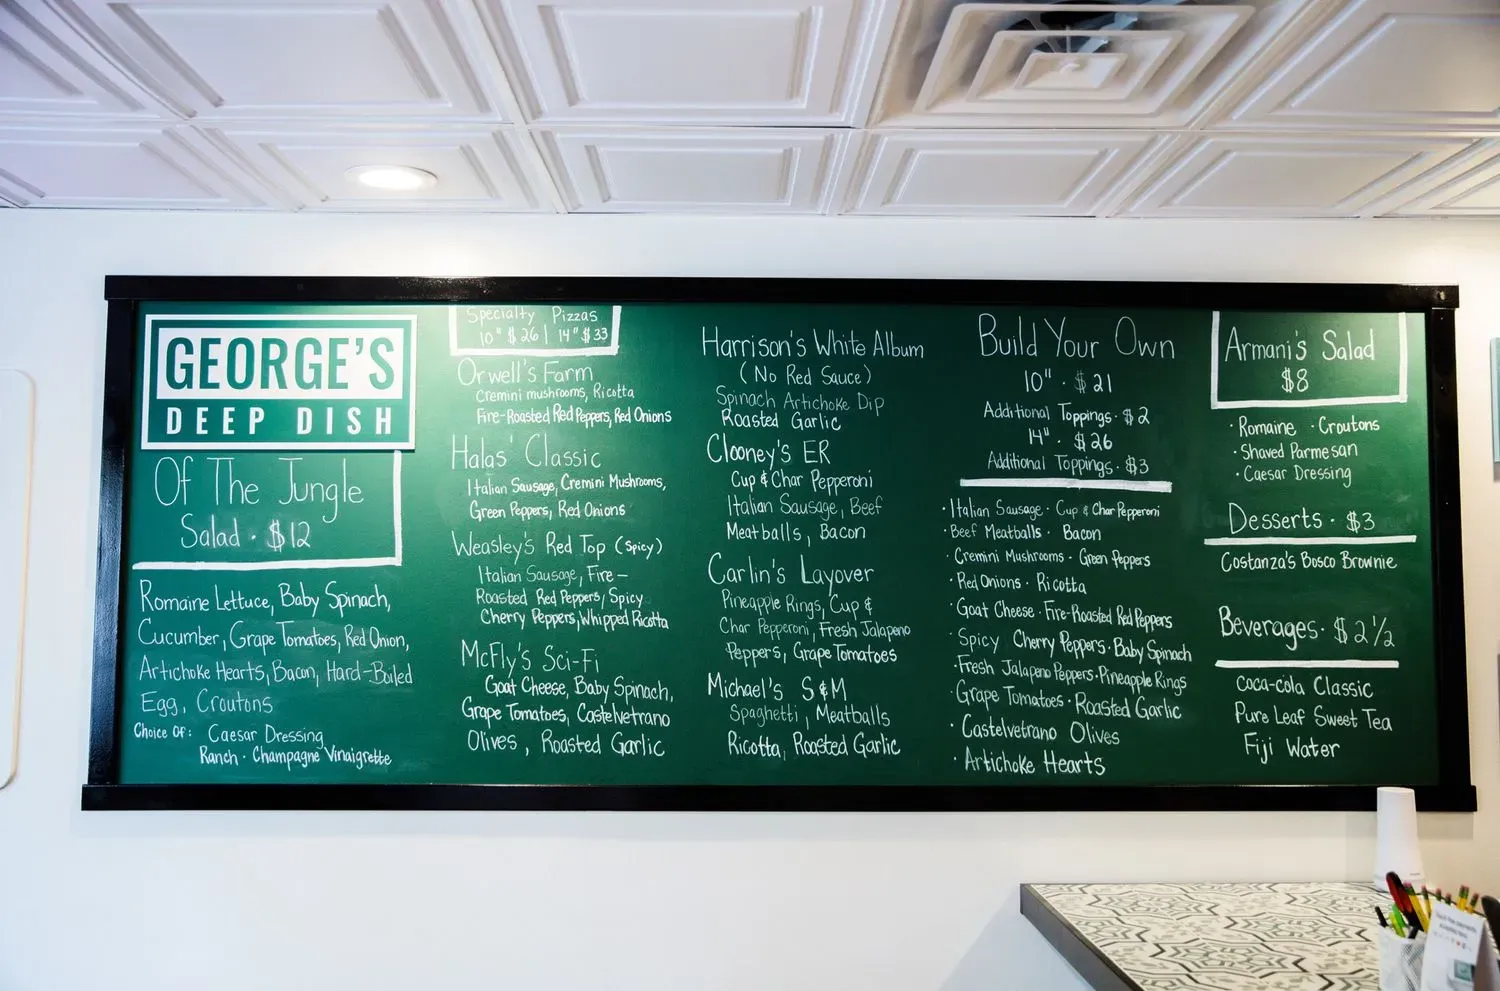 GEORGE'S
DEEP DISH
Of The Jungle
Salad · $12
Romaine Lettuce, Baby Spinach,
Cucumber, Grape Tomatoes, Red Onion,
Artichoke Hearts, Bacon, Hard-Boiled
Egg, Croutons
Choice Of: Caesar Dressing
Ranch · Champagne Vinaigrette
Specialty Pizzas
10" $26 | 14" $33
Orwell's Farm
Cremini mushrooms, Ricotta
Fire-Roasted Red Peppers, Red Onions
Halas' Classic
Italian Sausage, Cremini Mushrooms,
Green Peppers, Red Onions
Weasley's Red Top (Spicy)
Italian Sausage, Fire-
Roasted Red Peppers, Spicy
Cherry Peppers, Whipped Ricotta
McFly's Sci-Fi
Goat Cheese, Baby Spinach,
Grape Tomatoes, Castelvetrano
Olives, Roasted Garlic
Harrison's White Album
(No Red Sauce)
Spinach Artichoke Dip
Roasted Garlic
Clooney's ER
Cup & Char Pepperoni
Italian Sausage, Beef
Meatballs, Bacon
Carlin's Layover
Pineapple Rings, Cup &
Char Pepperoni, Fresh Jalapeno
Peppers, Grape Tomatoes
Michael's S&M
Spaghetti, Meatballs
Ricotta, Roasted Garlic
Build Your Own
10" · $21
Additional Toppings · $2
14" · $26
Additional Toppings · $3
· Italian Sausage · Cup & Char Pepperoni
· Beef Meatballs · Bacon
· Cremini Mushrooms · Green Peppers
· Red Onions · Ricotta
· Goat Cheese · Fire-Roasted Red Peppers
· Spicy Cherry Peppers · Baby Spinach
· Fresh Jalapeno Peppers · Pineapple Rings
· Grape Tomatoes · Roasted Garlic
· Castelvetrano Olives
· Artichoke Hearts
Armani's Salad
$8
· Romaine · Croutons
· Shaved Parmesan
· Caesar Dressing
Desserts · $3
Costanza's Bosco Brownie
Beverages · $2 1/2
Coca-Cola Classic
Pure Leaf Sweet Tea
Fiji Water